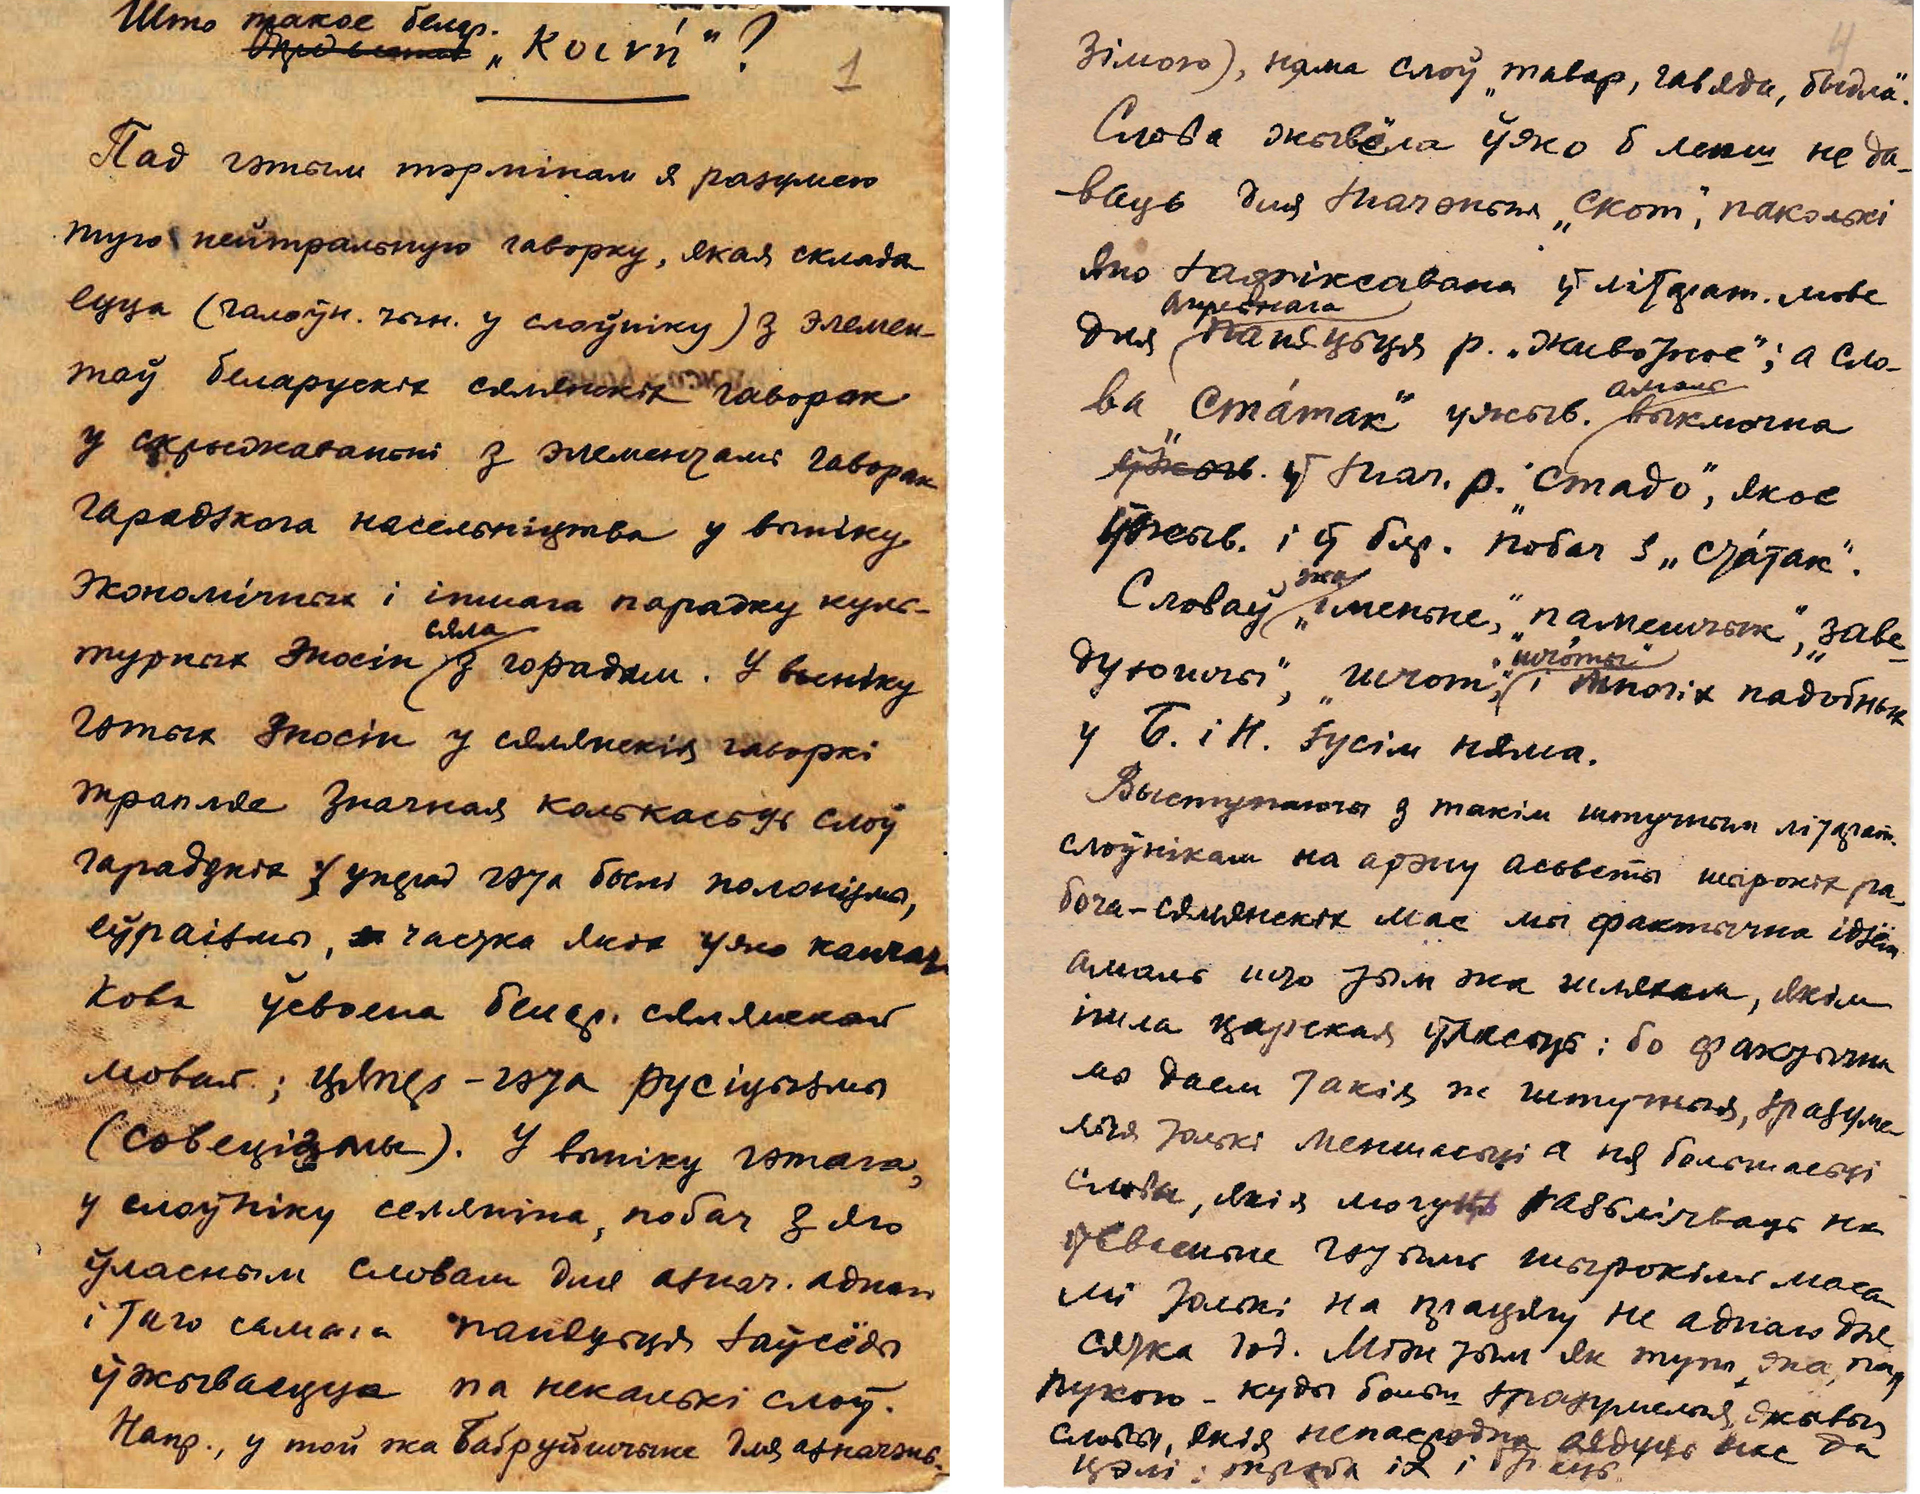 Што такое белар.
„Κοινή“?
1
Пад гэтым тэрмінам я разумею
тую нейтральную гаворку, якая склада
ецца (галоўн. чын. у слоўніку) з элемен-
таў беларускіх сялянскіх гаворак
у скрыжаваньні з элементамі гаворак
гарадзкога насельніцтва у выніку
экономічных і іншага парадку куль-
турных зносін сяла з горадам. У выніку
гэтых зносін у сялянскія гаворкі
трапляе значная колькасьць слоў
гарадзкіх; упярод гэта былі полонізмы,
еўраізмы, частка якіх ужо канчат
кова ўсвоена белар. сялянскай
мовай; цяпер – гэта русіцызмы
(совецізмы). У выніку гэтага,
у слоўніку селяніна, побач з яго
ўласным словам для азнач. аднаго
і таго самага паняцьця заўсёды
ўжываецца па некалькі слоў.
Напр., у той жа Бабруйшчыне для азначэнь-
4
зімою), няма слоў „тавар, гавяда, быдла“.
Слова жывёла ўжо б лепш не да-
ваць для значэньня „скот“, паколькі
яно зафіксавана ў літэрат. мове
для пэўнага паняцьця р. „животное“; а сло-
ва „ста́так“ ужыв. амаль выключна
ў знач. р. „стадо“, якое
ўжыв. і ў бяр. побач з „ста́так“.
Словаў жа „іменьне“, „памешчык“, „заве-
дуюшчы“, „шчот“, „шчоты“ і многіх падобных
у Б. і Н. зусім няма.
Выступаючы з такім штучным літэрат.
слоўнікам на арэну асьветы шырокіх ра-
боча-сялянскіх мас мы фактычна ідзём
амаль што тым жа шляхам, якім
ішла царская ўласьць: бо фактычна
мы даем такія ж штучныя, зразуме-
лыя толькі меншасьці а ня большасьці
словы, якія могуць разьлічваць на
ўсваеньне гэтымі шырокімі маса
мі толькі на працягу не аднаго дзе
сятка год. Між тым як тут жа, пад
рукою – куды больш зразумелыя, жывыя
словы, якія непасрэдна вядуць нас да
цэлі; трэба іх і